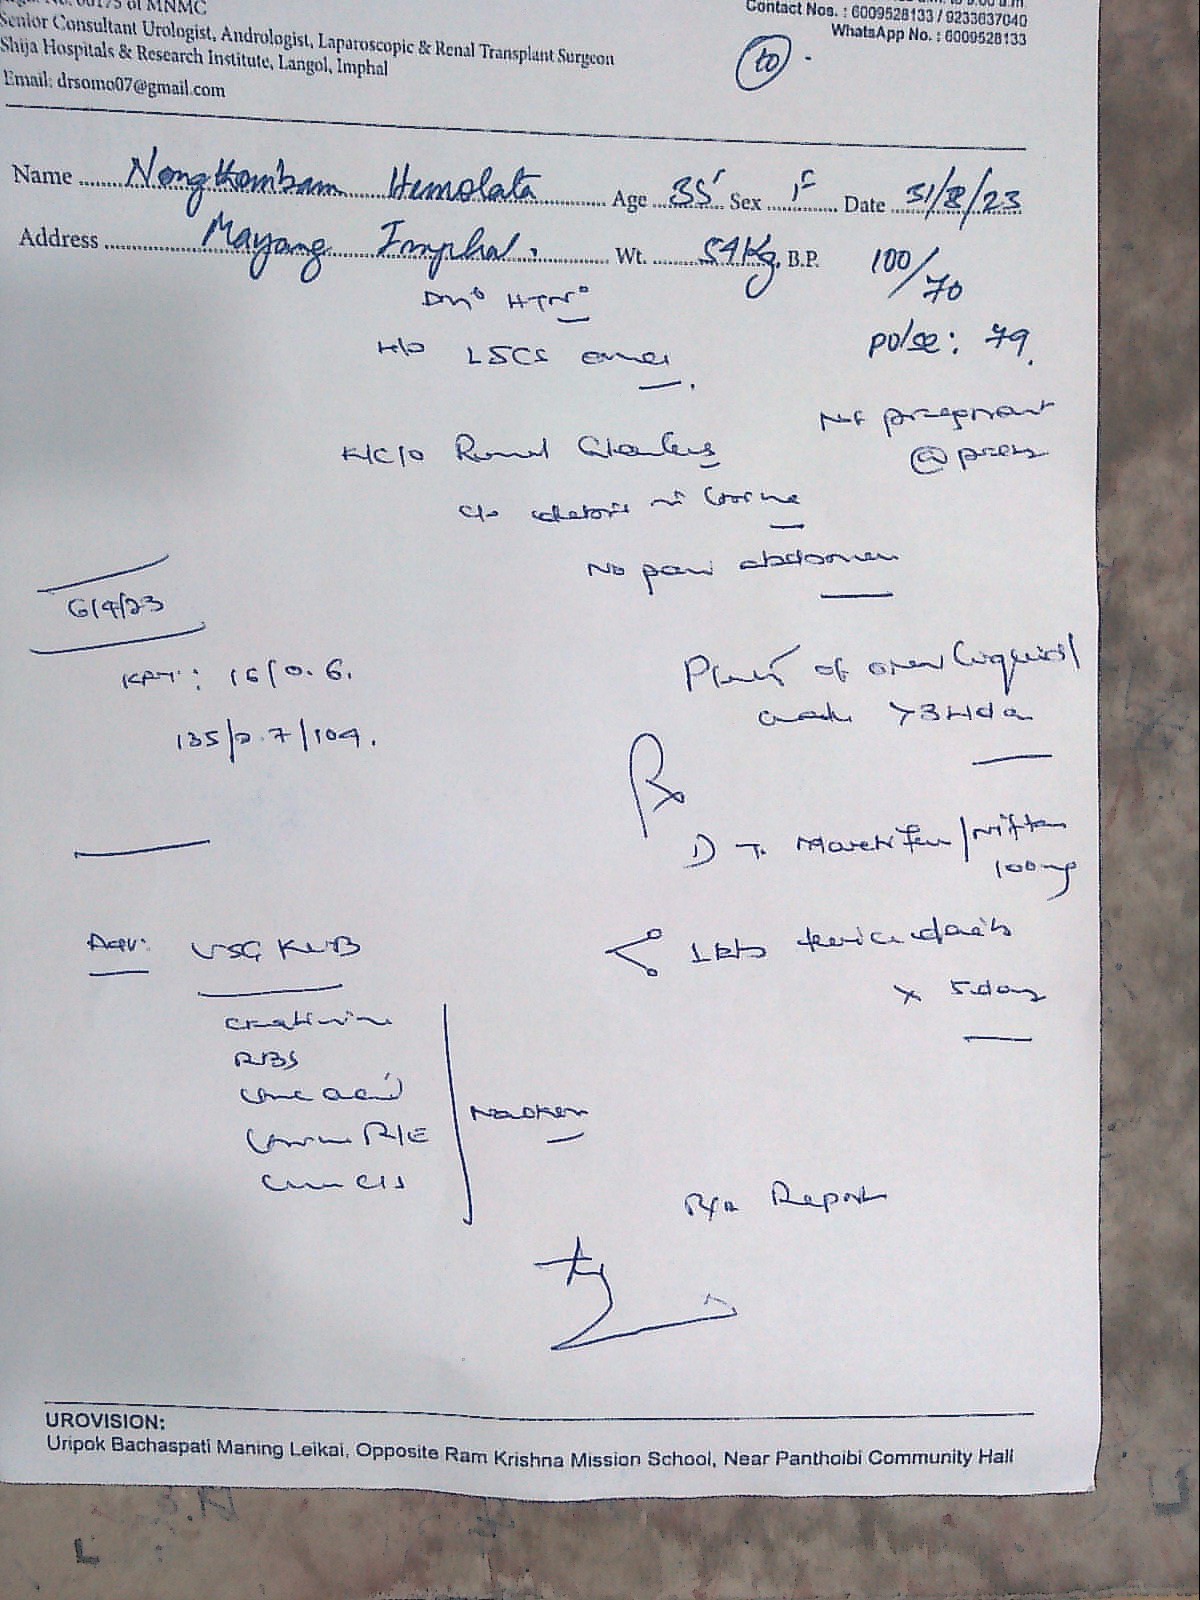 of MNMC
Senior Consultant Urologist, Andrologist, Laparoscopic & Renal Transplant Surgeon
Shija Hospitals & Research Institute, Langol, Imphal
Email: drsomo07@gmail.com
Contact Nos. : 6009528133 / 9233637040
WhatsApp No. : 6009528133
to
Name Nongthombam Hemolata Age 35 Sex F Date 31/8/23
Address Mayang Imphal. Wt. 54Kg. B.P. 100/70
pulse: 79.
DM° HTN°
H/o LSCS
Not pregnant
@
K/C/O Renal
c/o
No pain abdomen
6/4/23
KFT: 16/0.6.
135/2.7/104.
Plenty of oral liquids/
℞
1) T. /
100mg
twice daily
x 5 day
Adv: USG KUB
Creatinine
RBS
Uric acid
Urine R/E
Urine C/S
Report
UROVISION:
Uripok Bachaspati Maning Leikai, Opposite Ram Krishna Mission School, Near Panthoibi Community Hall